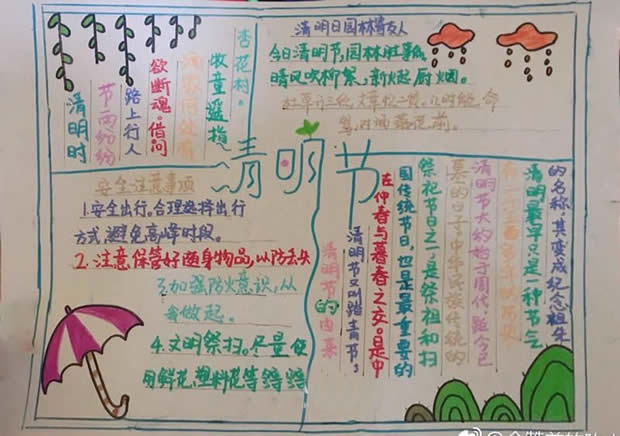 清明时
节雨纷纷
路上行人
欲断魂。借问
酒家何处有
牧童遥指
杏花村。
清明日园林寄友人
今日清明节,园林胜事偏。
晴风吹柳絮,新火起厨烟。
杜草开三径,文章忆二贤。几时能命
驾,对酒落花前。
清明节
安全注意事项
1.安全出行。合理选择出行
方式,避免高峰时段。
2.注意保管好随身物品,以防丢失
3.加强防火意识,从
我做起。
4.文明祭扫。尽量使
用鲜花,塑料花等
清明节的由来
清明节又叫踏青节,
在仲春与暮春之交。是中
国传统节日,也是最重要的
祭祀节日之一,是祭祖和扫
墓的日子。中华民族传统的
清明节大约始于周代,距今已
有二千五百多年的历史
清明最早只是一种节气
的名称,其变成纪念祖先